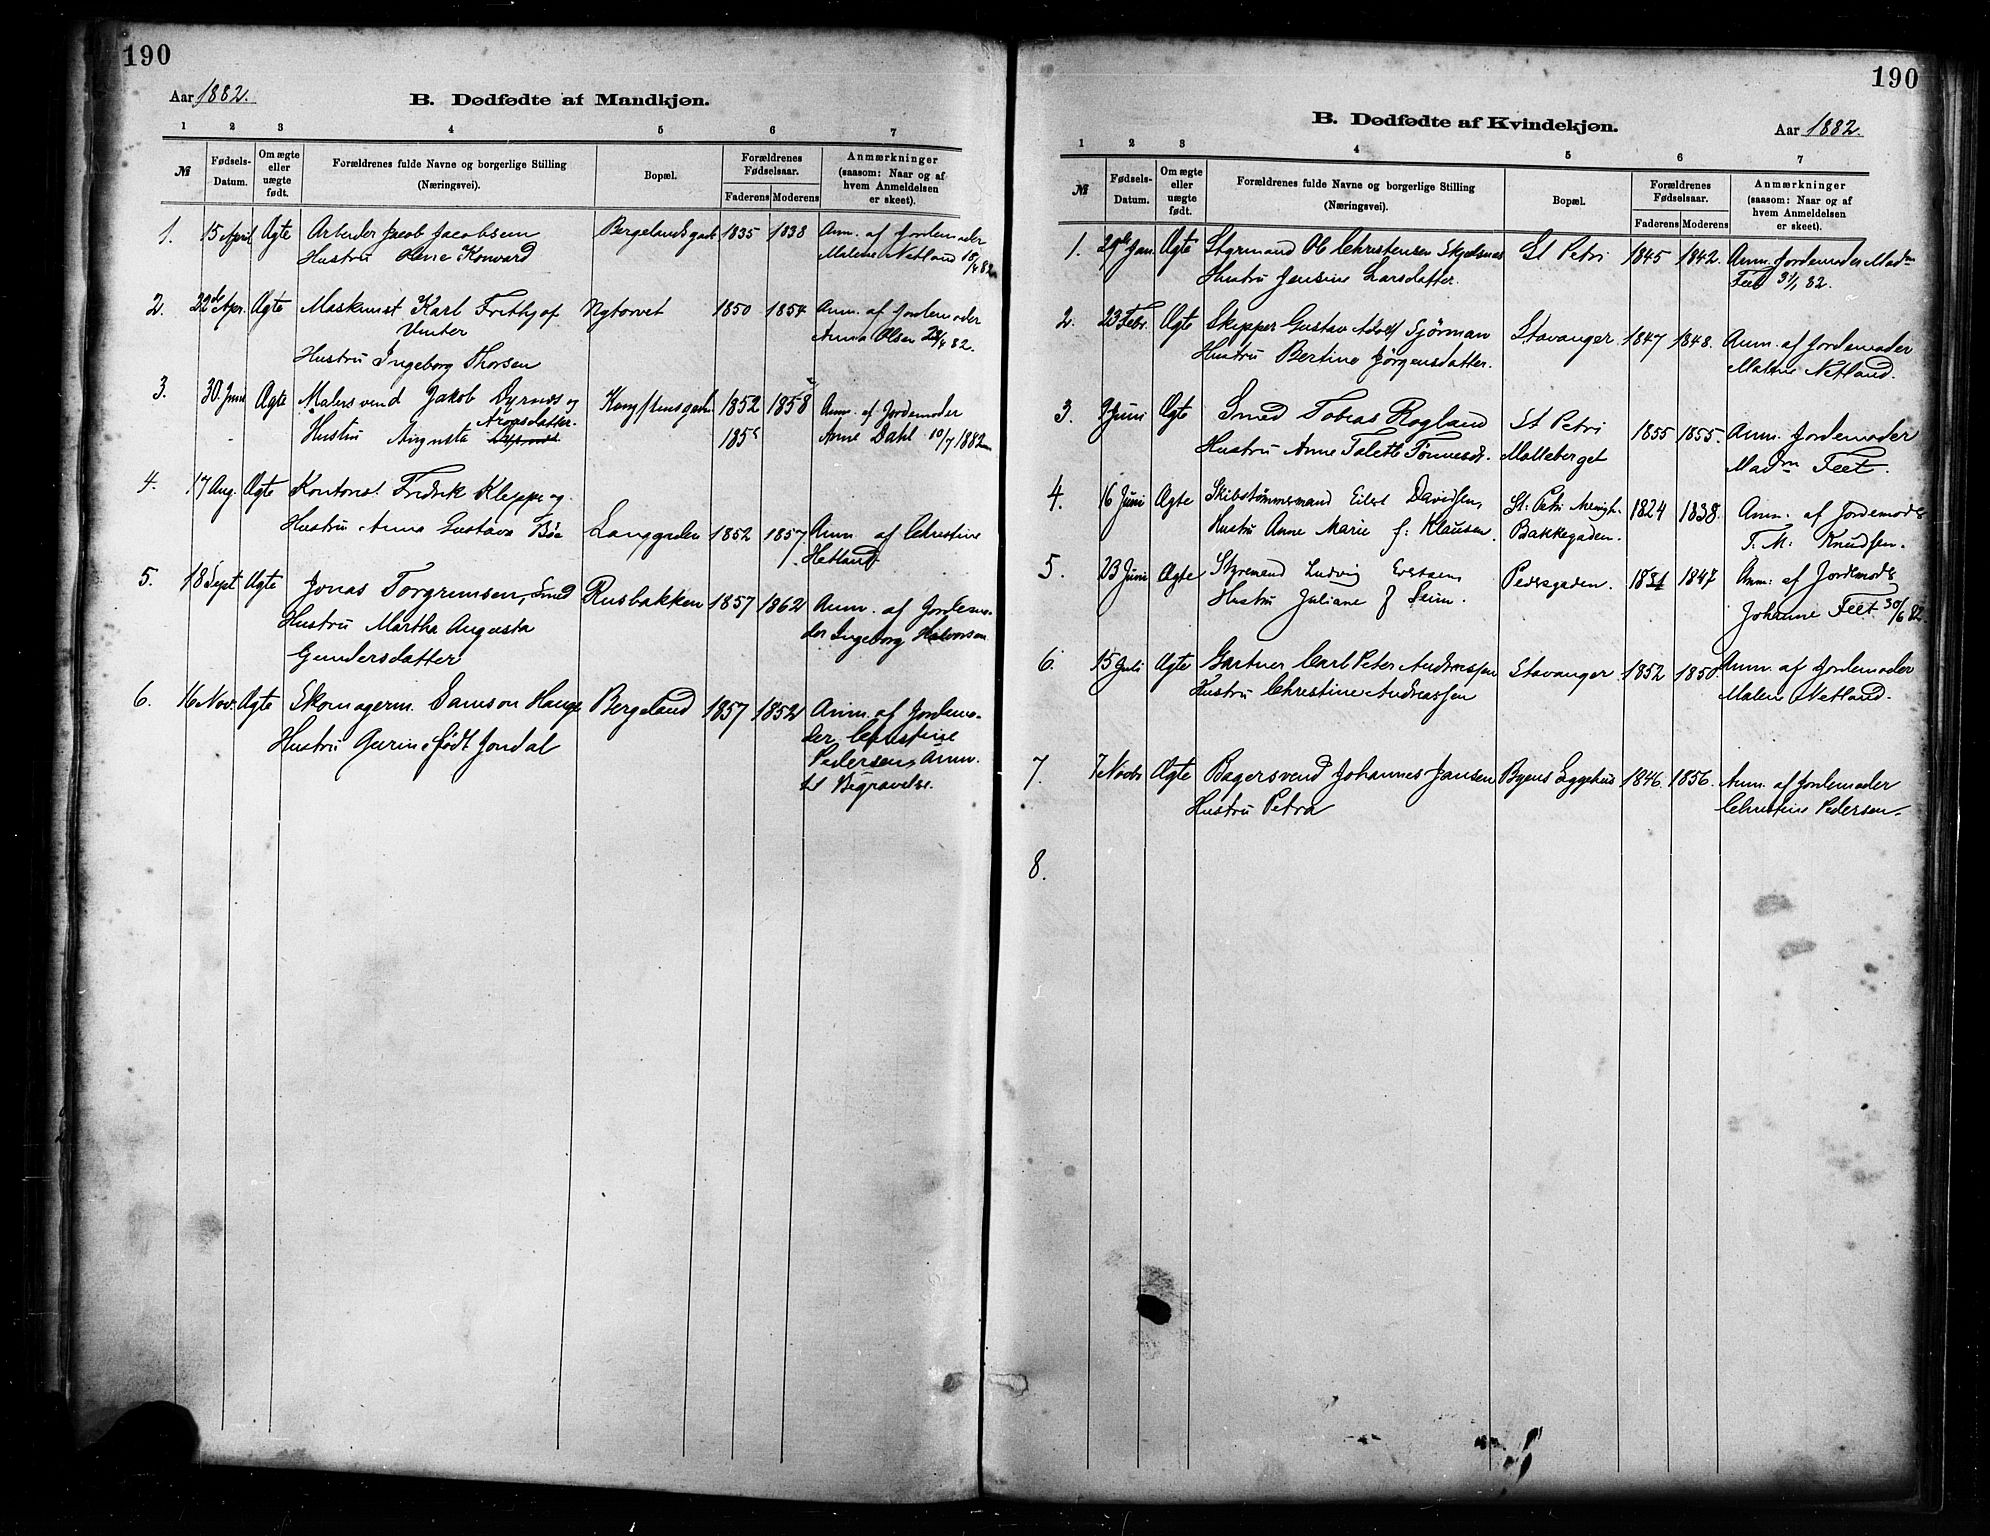 190
Aar 1882.
B. Dødfødte af Mandkjøn.
1 2 3 4 5 6 7
№ Fødsels-Datum. Om ægte eller uægte født. Forældrenes fulde Navne og borgerlige Stilling (Næringsvei). Bopæl. Forældrenes Fødselsaar. Faderens Moderens Anmærkninger (saasom: Naar og af hvem Anmeldelsen er skeet).
1. 15 April Ægte Arbeider Jacob Jacobsen Bergelandsgade 1835 1838 Anm. af Jordemoder
Hustru Konward Malene Netland 18/4 82
2. 22de Apr. Ægte Maskinist Karl Frithjof Nytorvet 1850 1854 Anm. af Jordemoder
Vinter Anna Olsen 24/4 82.
Hustru Ingeborg Thorsen
3. 30 Juni Ægte Malersvend Jakob Dyrnes og 1852 1858 Anm. af Jordemoder
Aronsdatter.
Hustru Augusta 185 Anne Dahl 10/7 1882
4. 17 Aug. Ægte Kontorist Fredrik Kleppe og
Hustru Anna Gustava Bøe Langgaden 1852 1857 Anm. af Christine
Hetland.
5. 18 Sept Ægte Jonas Torgrimsen, Smed Rusbakken 1857 1862 Anm. af Jordemo-
Hustru Martha Augusta der Ingeborg Halvorsen
Gundersdatter
6. 16 Nov. Ægte Skomagerm. Samson Hauge Bergeland 1857 1852 Anm. af Jordemo-
Hustru Gurine født Jondal der Christine
Pedersen, Anm.
til Begravelse.
190
B. Dødfødte af Kvindekjøn.
Aar 1882.
1 2 3 4 5 6 7
№ Fødsels-Datum. Om ægte eller uægte født. Forældrenes fulde Navne og borgerlige Stilling (Næringsvei). Bopæl. Forældrenes Fødselsaar. Faderens Moderens Anmærkninger (saasom: Naar og af hvem Anmeldelsen er skeet).
1. 29de Jan. Ægte Styrmand Ole Christensen Skjelsnes St Petri 1845 1842. Anm. Jordemoder Madm
Hustru Jensine Larsdatter. Feet 31/1 82.
2. 23 Febr. Ægte Skipper Gustav Adolf Sjörman Stavanger 1847 1848. Anm. af Jordemoder
Hustru Bertine Jörgensdatter. Malene Netland.
3. 9 Juni Ægte Smed Tobias Rogland St Petri 1855 1855. Anm. Jordemoder
Hustru Anne Talette Tönnesdt. Malleberget Madm Feet.
4. 16 Juni Ægte Skibstømmermand Eilert Davidsen, St. Petri Menigh. 1824 1838. Anm. af Jordemoder
Hustru Anne Marie f: Klausen. Bakkegaden. T. M: Knudsen.
5. 23 Juni Ægte Styrmand Ludvig Pedersgaden. 1851 1847 Anm: af Jordemoder
Hustru Juliane f Seim. Johanne Feet 30/6 82
6. 15 Juli Ægte Gartner Carl Peter Andreassen Stavanger 1852 1850 Anm. af Jordemoder
Hustru Christine Andreassen Malene Netland.
7. 7 Novbr Ægte Bagersvend Johannes Jansen Byens Sygehus 1846. 1856. Anm. af Jordemoder
Hustru Petra Christine Pedersen.
8.